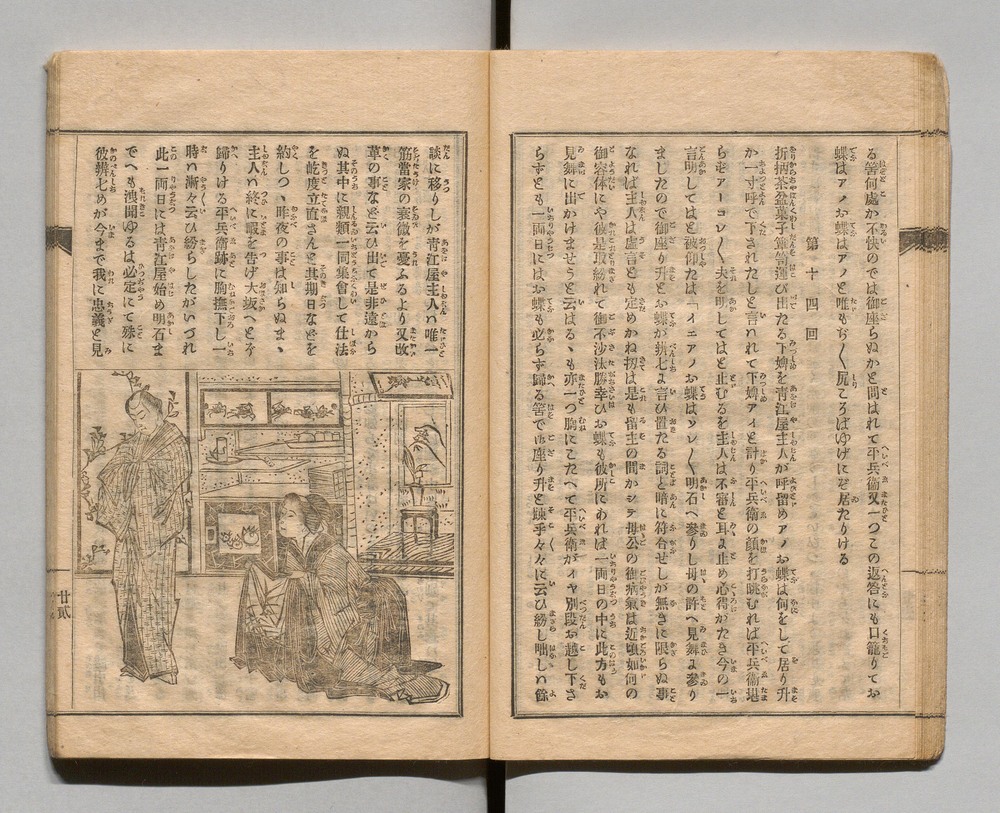 る筈何處か不快のでは御座らぬかと問はれて平兵衛又一つこの返答にも口籠りてお
蝶はアノお蝶はアノと唯もぢ〳〵尻こそばゆげにぞ居たりける
第十四回
折柄茶盆菓子簞笥運び出たる下婢を青江屋主人が呼留めアノお蝶は何をして居り升
か一寸呼で下されたしと言れて下婢アイと計り平兵衛の顔を打眺むれば平兵衛堪
らずアーコレ〳〵夫を明してはと止むるを主人は不審と耳よ止め心得がたき今の一
言明してはと被仰たは「イエアノお蝶はソレ〳〵明石へ參りし母の許へ見舞よ參り
ましたので御座り升とお蝶が辨七よ言ひ置たる詞と暗に符合せしが無きに限らぬ事
なれば主人は虚言とも定めかね扨は是も留主の間かシテ母公の御病氣は近頃如何の
御容体にや彼是取紛れて御不沙汰勝幸ひお蝶も彼所にあれば一兩日の中に此方もお
見舞に出かけませうと云はるゝも亦一つ胸にこたへて平兵衛がイヤ別段お越し下さ
らずとも一兩日にはお蝶も必らず歸る筈で御座り升と疎乎々々に云ひ紛し咄しハ餘
談に移りしが青江屋主人ハ唯一
筋當家の衰微を憂ふるより又改
革の事など云ひ出て是非遠から
ぬ其中に親類一同集會して仕法
を屹度立直さんと其期日などを
約しつゝ昨夜の事は知らぬまゝ
主人ハ終に暇を告げ大坂へと
歸りける平兵衛跡に胸撫下し一
時ハ漸々云ひ紛らしたがいづれ
此一兩日には青江屋始め明石ま
でへも洩聞ゆるは必定にて殊に
彼辨七めが今まで我に忠義と見
廿貳